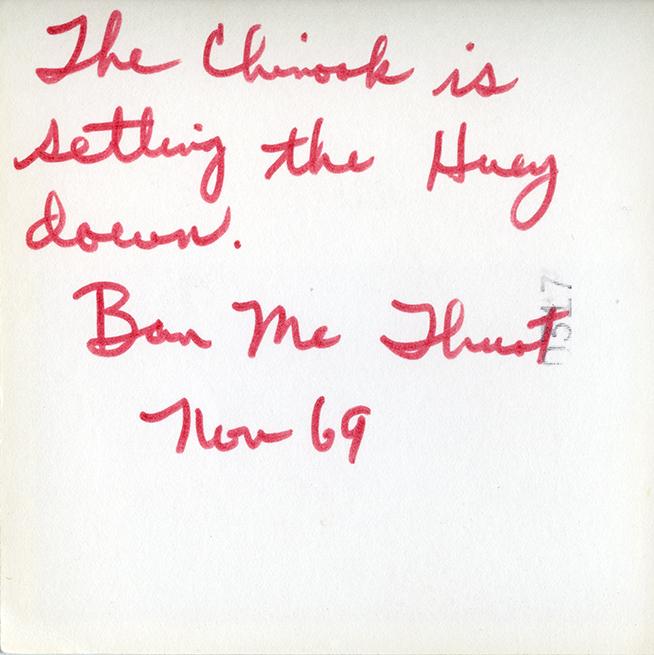 The Chinook is
setting the Huey
down.
Ban Me Thuot
Nov 69